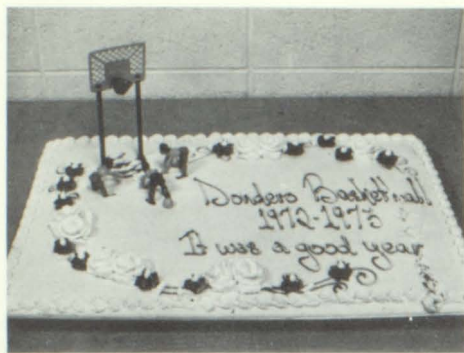 Dondero Basketball
1972-1973
It was a good year